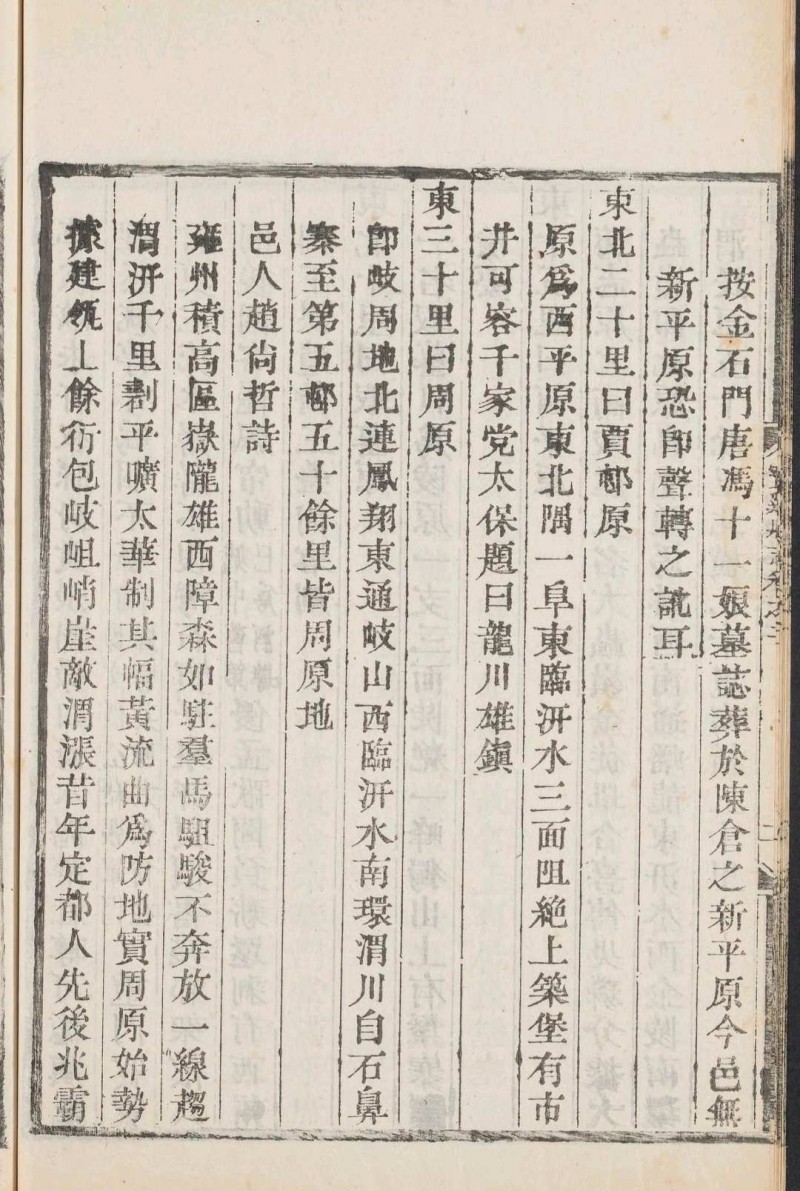 按金石門唐馮十一娘墓誌葬於陳倉之新平原今邑無
新平原恐卽聲轉之訛耳
東北二十里曰賈邨原
原爲西平原東北隅一阜東臨汧水三面阻絶上築堡有市
井可容千家党太保題曰龍川雄鎮
東三十里曰周原
卽岐周地北連鳳翔東通岐山西臨汧水南環渭川自石鼻
寨至第五邨五十餘里皆周原地
邑人趙尙哲詩
雍州積高區嶽隴雄西障森如駐羣馬駔駿不奔放一線趨
渭汧千里剷平曠太華制其幅黃流曲爲防地實周原始勢
據建瓴上餘衍包岐岨峭崖敵渭漲昔年定都人先後兆霸